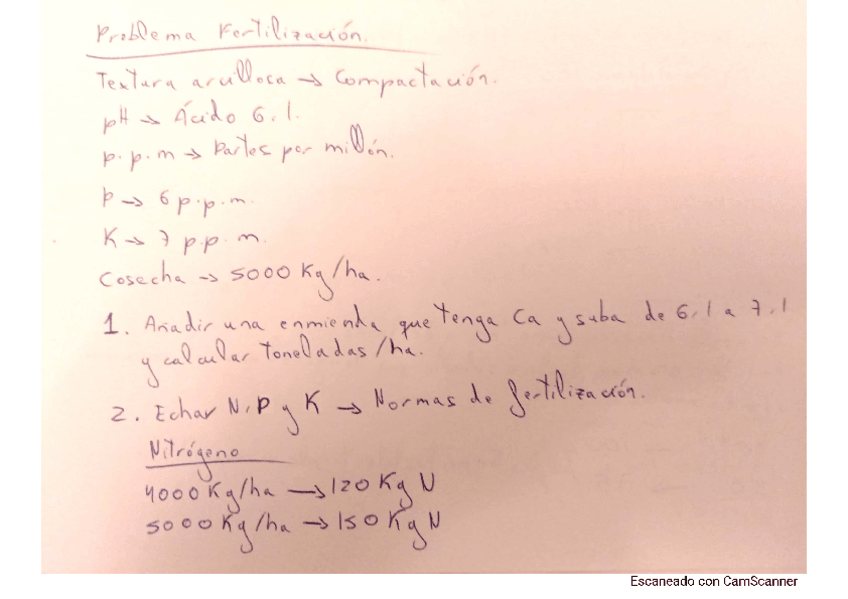 Problema Fertilización.
Textura arcillosa → Compactación.
pH → Ácido 6.1.
p.p.m → Partes por millón.
P → 6 p.p.m.
K → 7 p.p.m.
Cosecha → 5000 Kg/ha.
1. Añadir una enmienda que tenga Ca y suba de 6.1 a 7.1
y calcular toneladas/ha.
2. Echar N, P y K → Normas de fertilización.
Nitrógeno
4000 Kg/ha → 120 Kg N
5000 Kg/ha → 150 Kg N
Escaneado con CamScanner